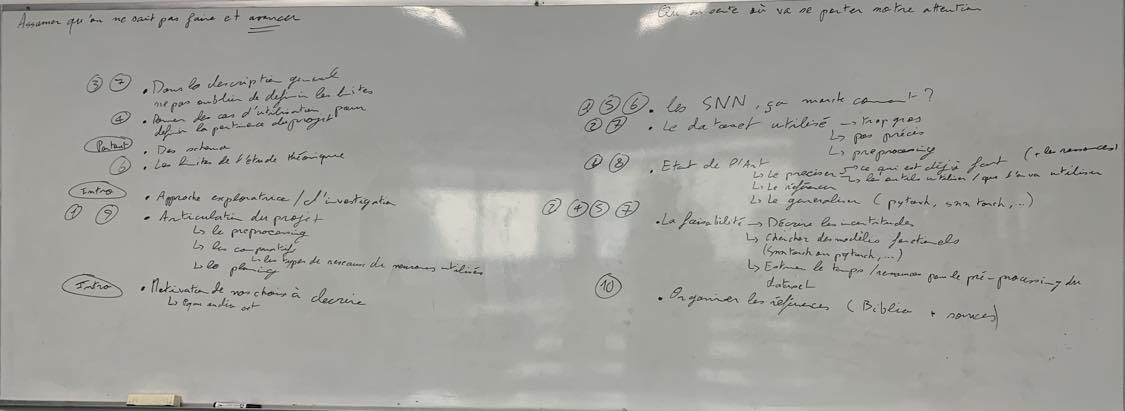 Assumer qu'on ne sait pas faire et avancer
③ ⑦ • Dans la description generale
ne pas oublier de definir les limites
④ • Donner des cas d'utilisation pour
definir la pertinence du projet
Partout • Des schema
⑥ • Les limites de l'étude théorique
Intro • Approche exploratrice / d'investigation
① ⑨ • Articulation du projet
↳ le preprocessing
↳ les comparatif
↳ les types de reseaux de neurones utilisés
↳ le planning
Intro • Motivation de nos choix à decrire
↳ en est
où va se porter notre attention
⑤ ⑥ • Les SNN, ça marche comment ?
② ⑦ • Le dataset utilisé → trop gros
↳ pas précis
↳ preprocessing
⑧ • Etat de l'Art (+ les ressources)
↳ Le preciser → ce qui est déjà fait
↳ les outils utilisés / que l'on va utiliser
↳ Le référencer
↳ Le generaliser (pytorch, snn torch, ...)
② ④ ⑤ ⑦ • La faisabilité → Décrire les incertitudes
↳ Chercher des modèles fonctionels
(snntorch ou pytorch, ...)
↳ Estimer le temps / ressources pour le pré-processing du
dataset
⑩ • Organiser les références (Biblio + sources)